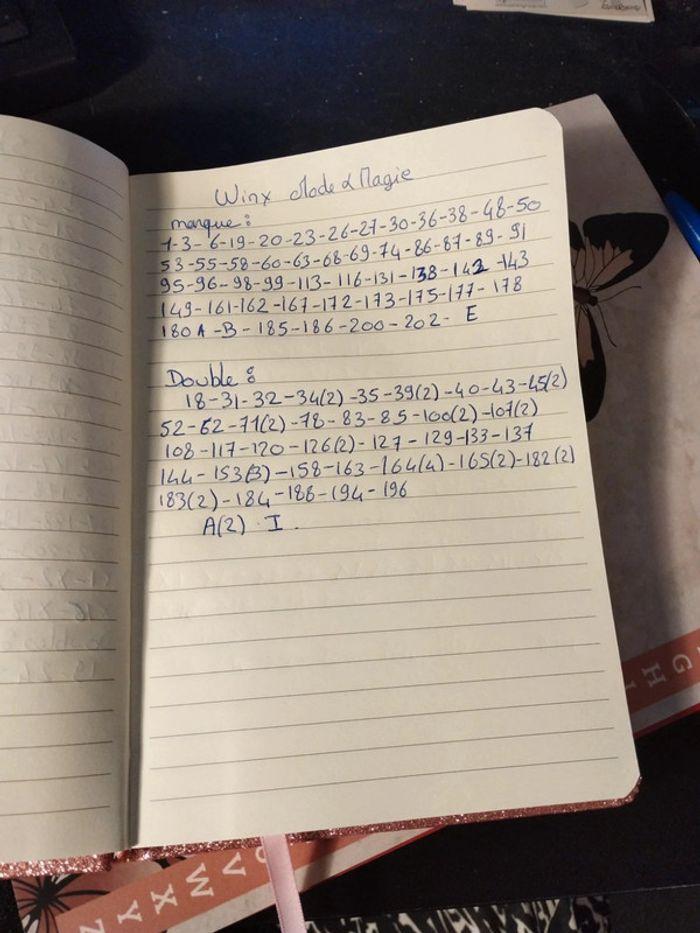 Winx Mode & Magie
manque :
1-3-6-19-20-23-26-27-30-36-38-48-50
53-55-58-60-63-68-69-74-86-87-89-91
95-96-98-99-113-116-131-138-142-143
149-161-162-167-172-173-175-177-178
180A-B-185-186-200-202- E
Double :
18-31-32-34(2)-35-39(2)-40-43-45(2)
52-62-71(2)-78-83-85-100(2)-107(2)
108-117-120-126(2)-127-129-133-137
144-153(3)-158-163-164(4)-165(2)-182(2)
183(2)-184-188-194-196
A(2) . I .
G H I
V W X Y Z